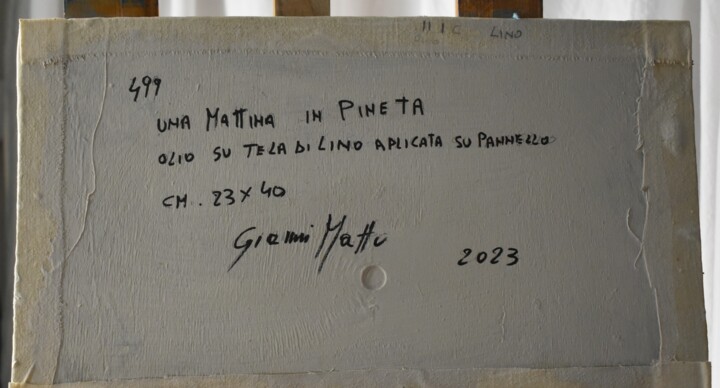 LINO
499
UNA MATTINA IN PINETA
OLIO SU TELA DI LINO APLICATA SU PANNELLO
CM. 23 X 40
Gianni Mattu
2023